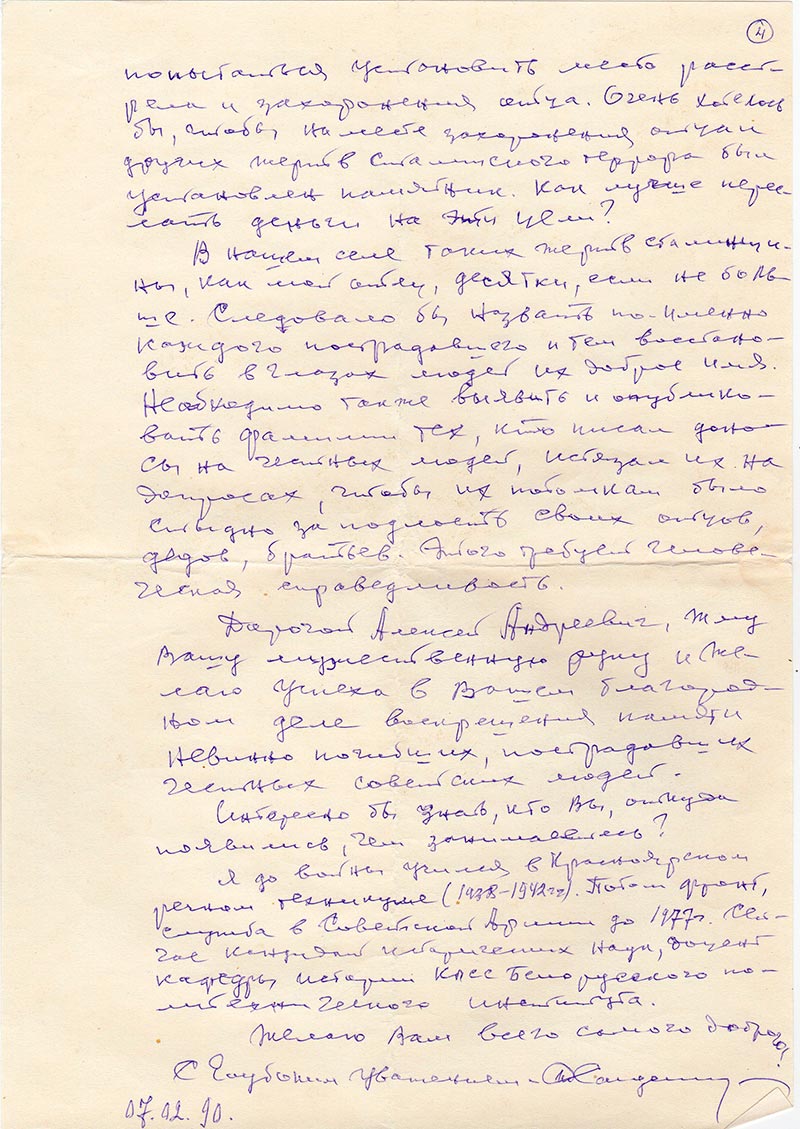 4
попытаться установить место расст-
рела и захоронения отца. Очень хотелось
бы, чтобы на месте захоронения отца и
других жертв сталинского террора был
установлен памятник. Как лучше перес-
лать деньги на эти цели?
В нашем селе таких жертв сталинщи-
ны, как мой отец, десятки, если не боль-
ше. Следовало бы назвать по-именно
каждого пострадавшего и тем восстано-
вить в глазах людей их доброе имя.
Необходимо также выявить и опублико-
вать фамилии тех, кто писал доно-
сы на честных людей, истязал их на
допросах, чтобы их потомкам было
стыдно за подлость своих отцов,
дедов, братьев. Этого требует челове-
ческая справедливость.
Дорогой Алексей Андреевич, жму
Вашу мужественную руку и же-
лаю успеха в Вашем благород-
ном деле воскрешения памяти
невинно погибших, пострадавших
честных советских людей.
Интересно бы узнать, кто Вы, откуда
появились, чем занимаетесь?
Я до войны учился в Красноярском
речном техникуме (1938-1942гг). Потом фронт,
служба в Советской Армии до 1977г. Сей-
час кандидат исторических наук, доцент
кафедры истории КПСС Белорусского по-
литехнического института.
Желаю Вам всего самого доброго!
С глубоким уважением -
07.02.90.